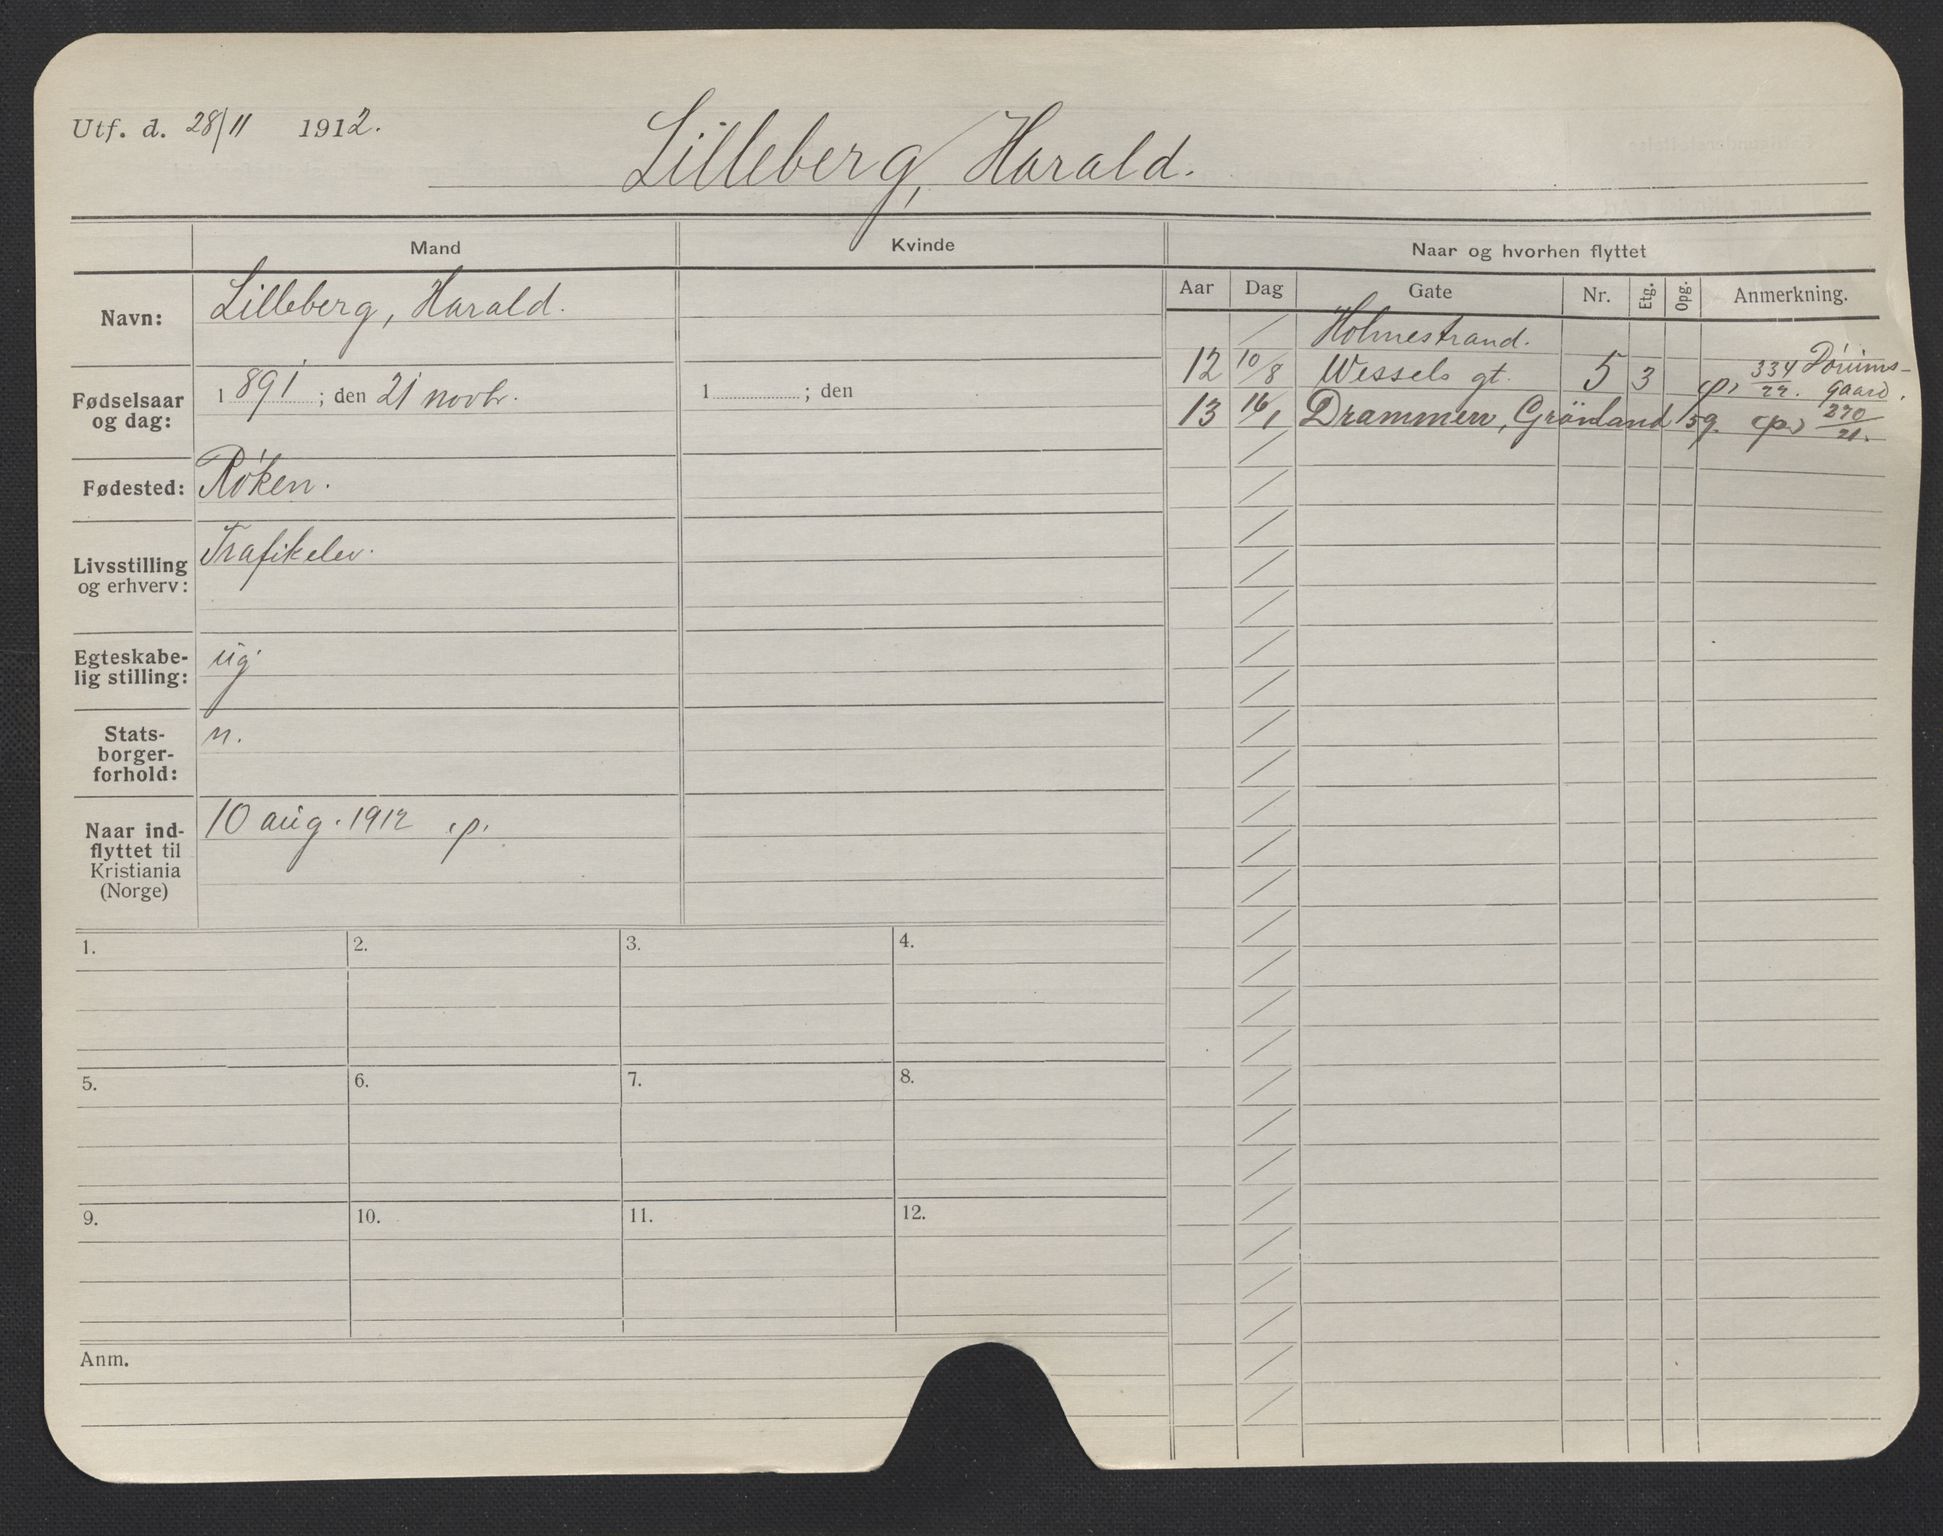 Utf. d. 28/11 1912.
Lilleberg, Harald.
Mand
Kvinde
Naar og hvorhen flyttet
Aar Dag Gate Nr. Etg. Opg. Anmerkning.
Navn: Lilleberg, Harald.
Holmestrand.
12 10/8 Wessels gt. 5 3 p, 334/22. Dørums-
gaard.
Fødselsaar og dag: 1 891 ; den 21 novbr. 1 ; den
13 16/1 Drammen, Grönland 159. p. 270/21.
Fødested: Røken.
Livsstilling og erhverv: Trafikelev.
Egteskabe-
lig stilling: ug
Stats-
borger-
forhold: n.
Naar ind-
flyttet til
Kristiania
(Norge) 10 aug. 1912 p.
1. 2. 3. 4.
5. 6. 7. 8.
9. 10. 11. 12.
Anm.